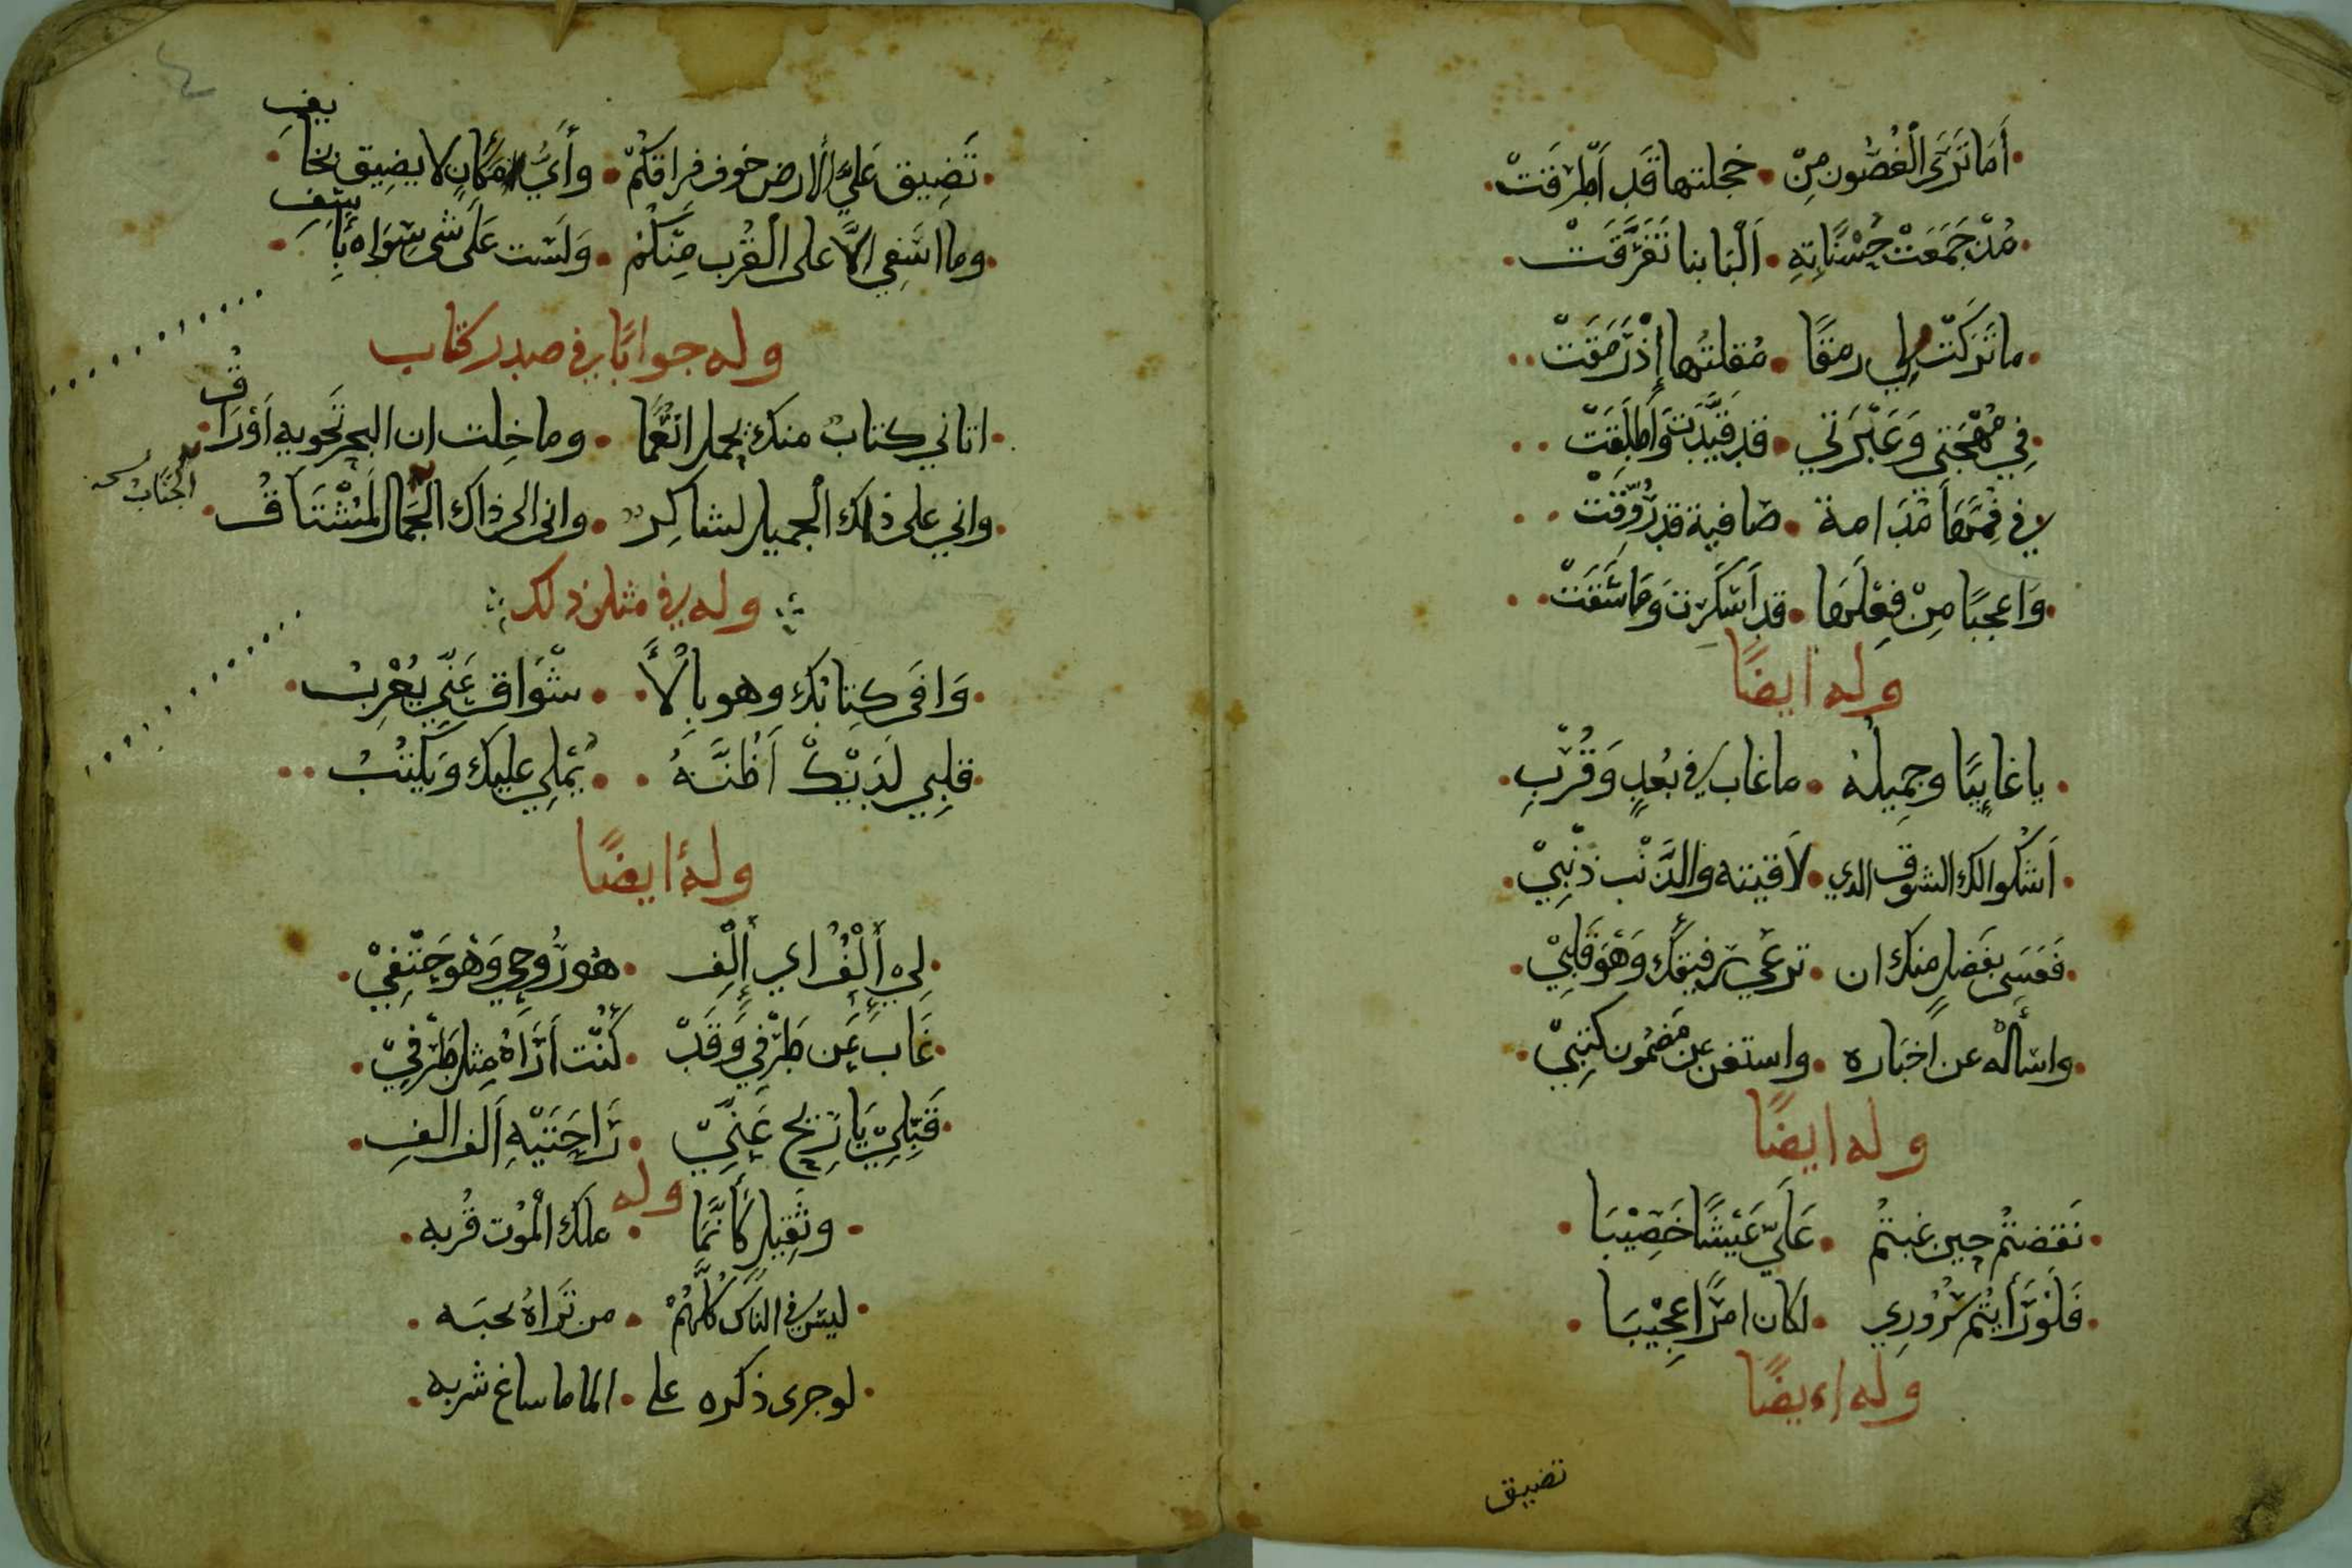 أَمَا تَرَى الْغُصُونَ مِنْ • خجلتها قَد اَطْرَقَتْ
مُذْ جَمَعَتْ حُسْنًا بِهِ • اَلْبَابنا تَفَرَّقَتْ
ما تَرَكَتْ لِي رمقًا • مُقلتُها إِذْ رَمَقَتْ
فِي مُهْجَتِي وَعَبْرَتِي • قد قَيَّدَت وَأَطلَقَتْ
لا في فَمِهَا مُدَامة • صافية قد رُوِّقَتْ
وَاعجبًا مِنْ فِعْلِهَا • قد أَسْكَرت وَمَا سَقَتْ
وله ايضًا
يا غايبًا وجميلُه • ما غاب في بُعدٍ وَقُرْبِ
اَشكوا لك الشوق الذي • لاَقيته والذَّنْب ذَنْبِيْ
فَعَسَى بفَضلٍ منك ان • ترعى رفيقك وَهْوَ قَلبِيْ
واسأله عن أخباره • واستغن عن مَضمُون كتبِيْ
وله ايضًا
نَقَضتُم حين غبتُم • عَلَيّ عَيْشًا خَصِيْبَا
فَلَوْ رَأَيتُم سُرُورِي • لكان امرًا عجِيْبَا
وله ايضًا
تضيق
تَضِيق عَلَيَّ الارض خوف فِراقكُمْ • وأَيُّ مَكَانٍ لا يضِيق بخايفِ
وما اسَفِي الاَّ على الْقُرْب مِنْكُمْ • وَلَسْت عَلَى شىءٍ سِوَاه بآسِفِ
وله جوابًا في صدر كتاب
اتاني كتابٌ منك يحمل انعُمًا • وما خِلت ان البحر تَحويه اَوْرَاقُ
واني على ذاك الْجميل لشاكِر • واني الى ذاك الجمَال لَمُشْتَاقُ
الجنابِ نسخه
وله في مثل ذلك
وَافَى كِتابُك وهو بِالْأَ • شْوَاقِ عَنِّي يُعْرِبُ
قلبِي لَدَيْكَ اَظُنّهُ • يُملِي عليك وَيكتُبُ
وله ايضًا
لِي إِلْفٌ اي إِلْفِ • هو رُوحِي وَهْوَ حَتْفِيْ
غَابَ عَن طَرْفِي وَقَدْ • كُنْت أَرَاهُ مِثل طَرْفِيْ
قَبِّلِيْ يَا رِيحُ عَنِّيْ • رَاحَتَيْهِ اَلف الفِ
وله
وثَقِيل كَأَنَّمَا • ملك الْمَوْت قُربه
ليسَ في النَاس كُلِّهُمْ • من تَرَاهُ يحبَه
لو جرى ذكره على • الما ما ساغ شربه